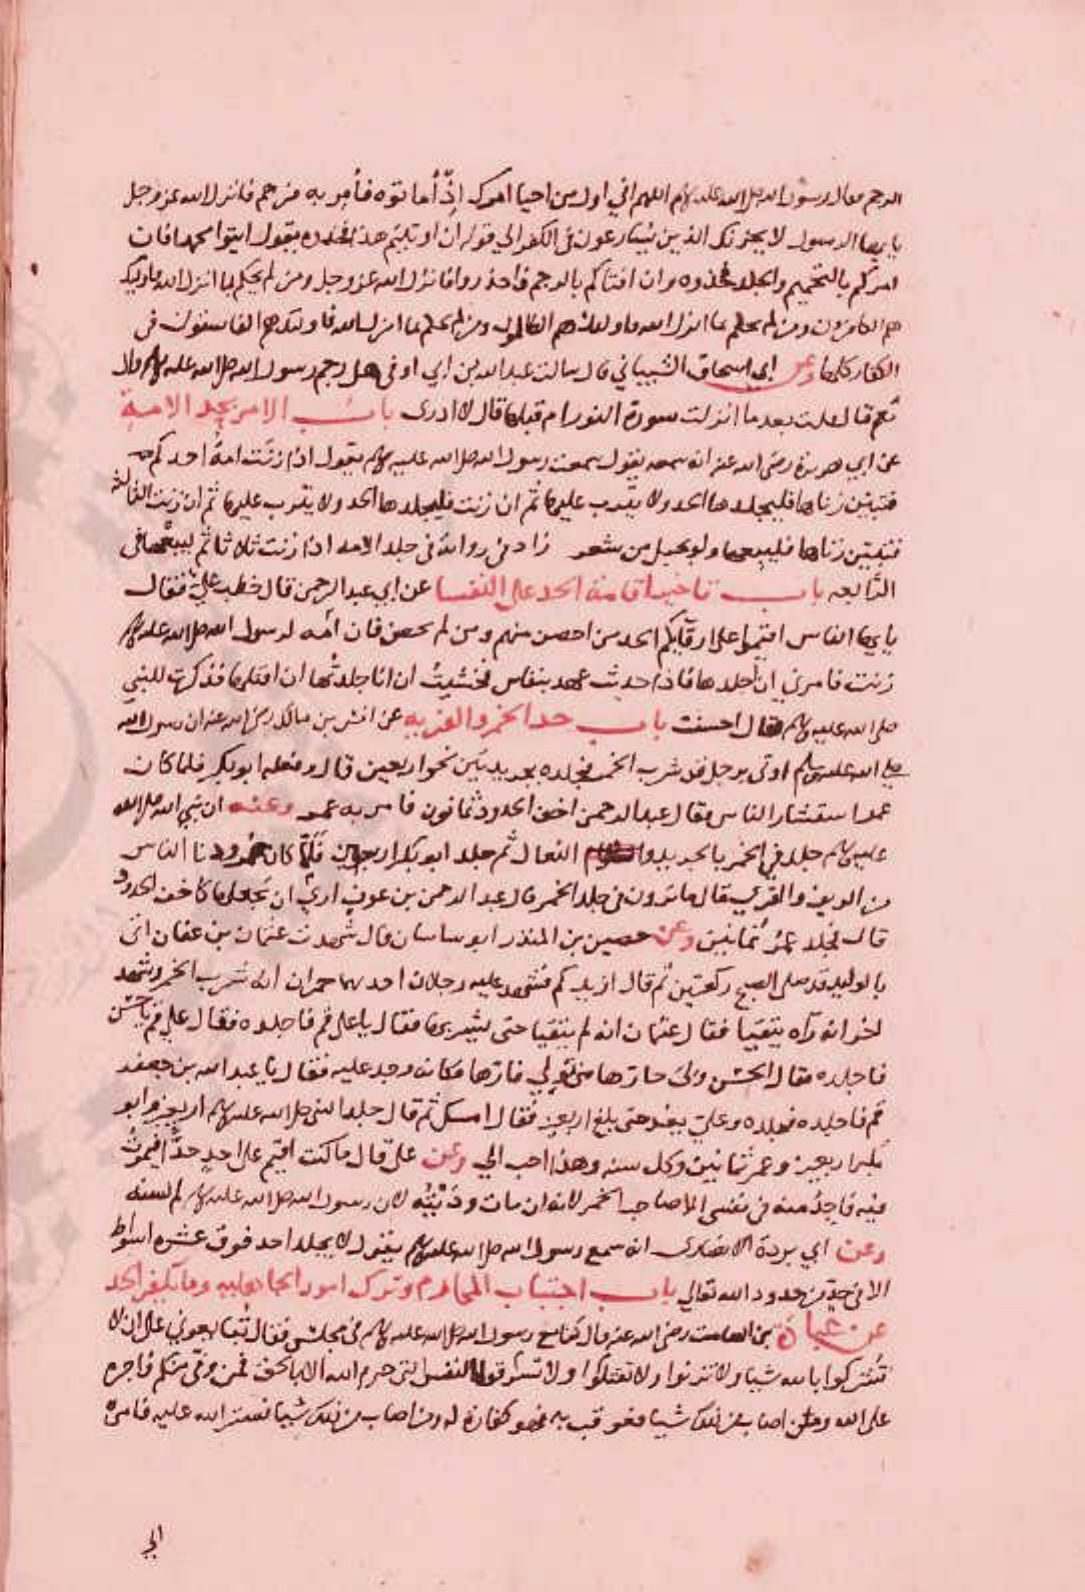 الرجم فقال رسول الله صلى الله عليه وسلم اللهم اني اول من احيا امرك اذ اماتوه فأمر به فرجم فانزل الله عز وجل
يايها الرسول لا يحزنك الذين يسارعون في الكفر الي قوله ان اوتيتم هذا فخذوه يقول ايتوا محمدا فان
امركم بالتحميم والجلد فخذوه وان افتاكم بالرجم فاحذروا فانزل الله عز وجل ومن لم يحكم بما انزل الله فاوليك
هم الكافرون ومن لم يحكم بما انزل الله فاوليك هم الظالمون ومن لم يحكم بما انزل الله فاوليك هم الفاسقون في
الكفار كلها وعن ابي اسحاق الشيباني قال سالت عبد الله بن ابي اوفى هل رجم رسول الله صلى الله عليه وسلم قال
نعم قال قلت بعد ما انزلت سورة النور ام قبلها قال لا ادرى باب الامر بجلد الامة
عن ابي هريرة رضي الله عنه انه سمعه يقول سمعت رسول الله صلى الله عليه وسلم يقول اذا زنت امة احدكم
فتبين زناها فليجلدها الحد ولا يثرب عليها ثم ان زنت فليجلدها الحد ولا يثرب عليها ثم ان زنت الثالثة
فتبين زناها فليبعها ولو بحبل من شعر زاد في رواية في جلد الامة اذا زنت ثلاثا ثم ليبعها في
الرابعه باب تاخير اقامة الحد على النفسا عن ابي عبد الرحمن قال خطب علي فقال
يايها الناس اقيموا على ارقائكم الحد من احصن منهم ومن لم يحصن فان امه لرسول الله صلى الله عليه وسلم
زنت فامرني ان اجلدها فاذا حديث عهد بنفاس فخشيت ان انا جلدتها ان اقتلها فذكرت للنبي
صلى الله عليه وسلم فقال احسنت باب حد الخمر والضربه عن انس بن مالك رضي الله عنه ان رسول الله
صلى الله عليه وسلم اوتى برجل قد شرب الخمر فجلده بجريدتين نحو اربعين قال وفعله ابو بكر فلما كان
عمر استشار الناس فقال عبد الرحمن اخف الحدود ثمانون فامر به عمر وعنه ان نبي الله صلى الله
عليه وسلم جلد في الخمر بالجريد والنعال ثم جلد ابو بكر اربعين فلما كان عمر ودنا الناس
من الريف والقرى فقال ما ترون في جلد الخمر قال عبد الرحمن بن عوف ارى ان تجعلها كاخف الحدود
قال فجلد عمر ثمانين وعن حصين بن المنذر ابو ساسان قال شهدت عثمان بن عفان اتى
بالوليد قد صلى الصبح ركعتين ثم قال ازيدكم فشهد عليه رجلان احدهما حمران انه شرب الخمر وشهد
اخر انه رآه يتقيا فقال عثمان انه لم يتقيا حتى يشربها فقال يا علي قم فاجلده فقال علي قم يا حسن
فاجلده فقال الحسن ولي حارها من تولي قارها فكانه وجد عليه فقال يا عبد الله بن جعفر
قم فاجلده فجلده وعلي يعد حتى بلغ اربعين فقال امسك ثم قال جلد النبي صلى الله عليه وسلم اربعين وابو
بكر اربعين وعمر ثمانين وكل سنه وهذا احب الي وعن علي قال ما كنت اقيم على احد حدا فيموت
فيه فاجد منه في نفسي الا صاحب الخمر لانه ان مات وديته لان رسول الله صلى الله عليه وسلم لم يسنه
وعن ابي بردة الانصارى انه سمع رسول الله صلى الله عليه وسلم يقول لا يجلد احد فوق عشره اسواط
الا في حد من حدود الله تعالي باب اجتناب المحارم وترك امور الجاهليه وما يكفر الحد
عن عبادة بن الصامت رضي الله عنه قال كنا مع رسول الله صلى الله عليه وسلم في مجلس فقال تبايعوني على ان لا
تشركوا بالله شيا ولا تزنوا ولا تقتلوا ولا تسرقوا النفس التي حرم الله الا بالحق فمن وفى منكم فاجره
على الله ومن اصاب من ذلك شيا فعوقب به فهو كفارة له ومن اصاب من ذلك شيا فستر الله عليه فامره
الي